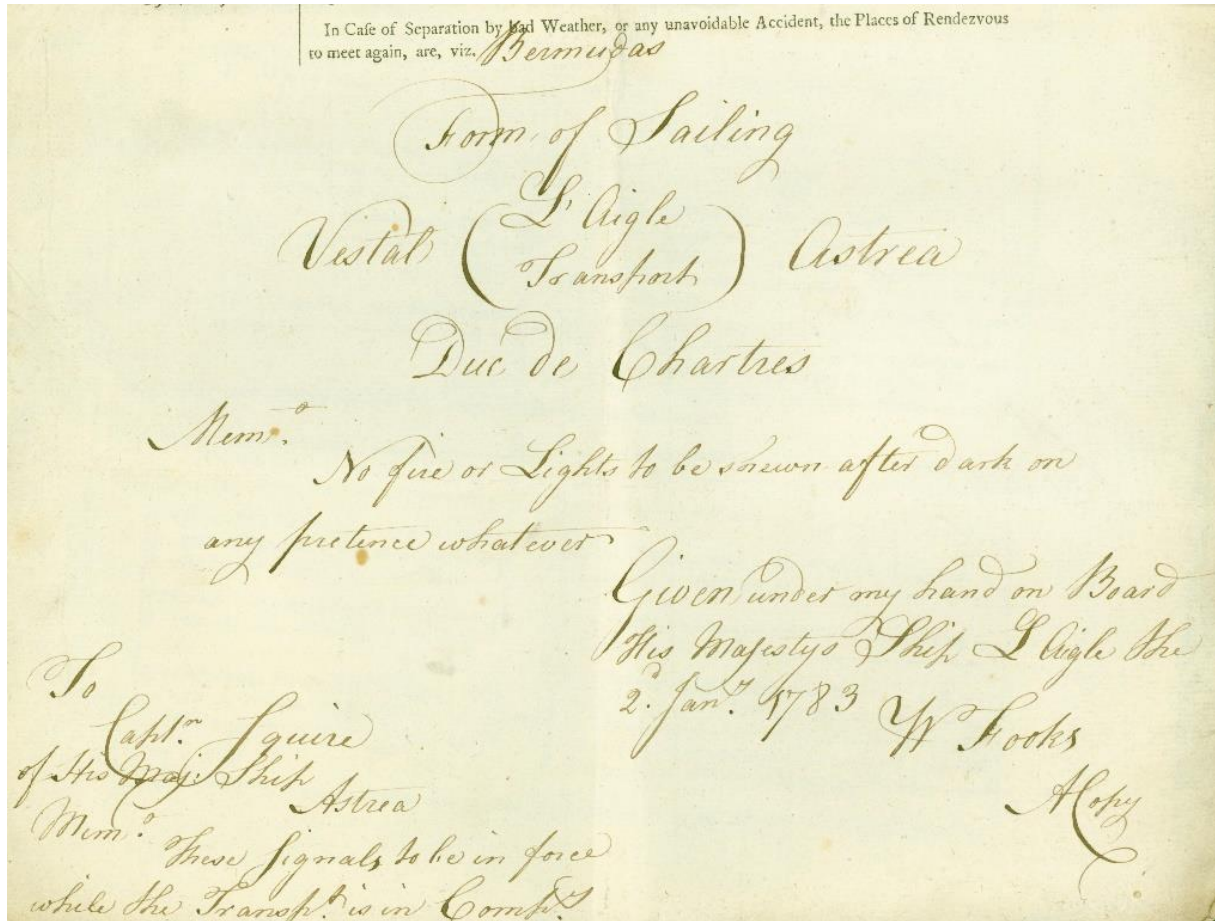 In Caſe of Separation by bad Weather, or any unavoidable Accident, the Places of Rendezvous
to meet again, are, viz. Bermudas
Form of Sailing
L'Aigle
Vestal ( Transport ) Astrea
Duc de Chartres
Mem.o
No fire or Lights to be shewn after dark on
any pretence whatever
Given under my hand on Board
His Majestys Ship L'Aigle the
2.d Jan.y 1783
W Fooks
A Copy
To
Capt.n Squire
of His Maj. Ship
Astrea
Mem.o
These Signals to be in force
while the Transp.t is in Comp.y